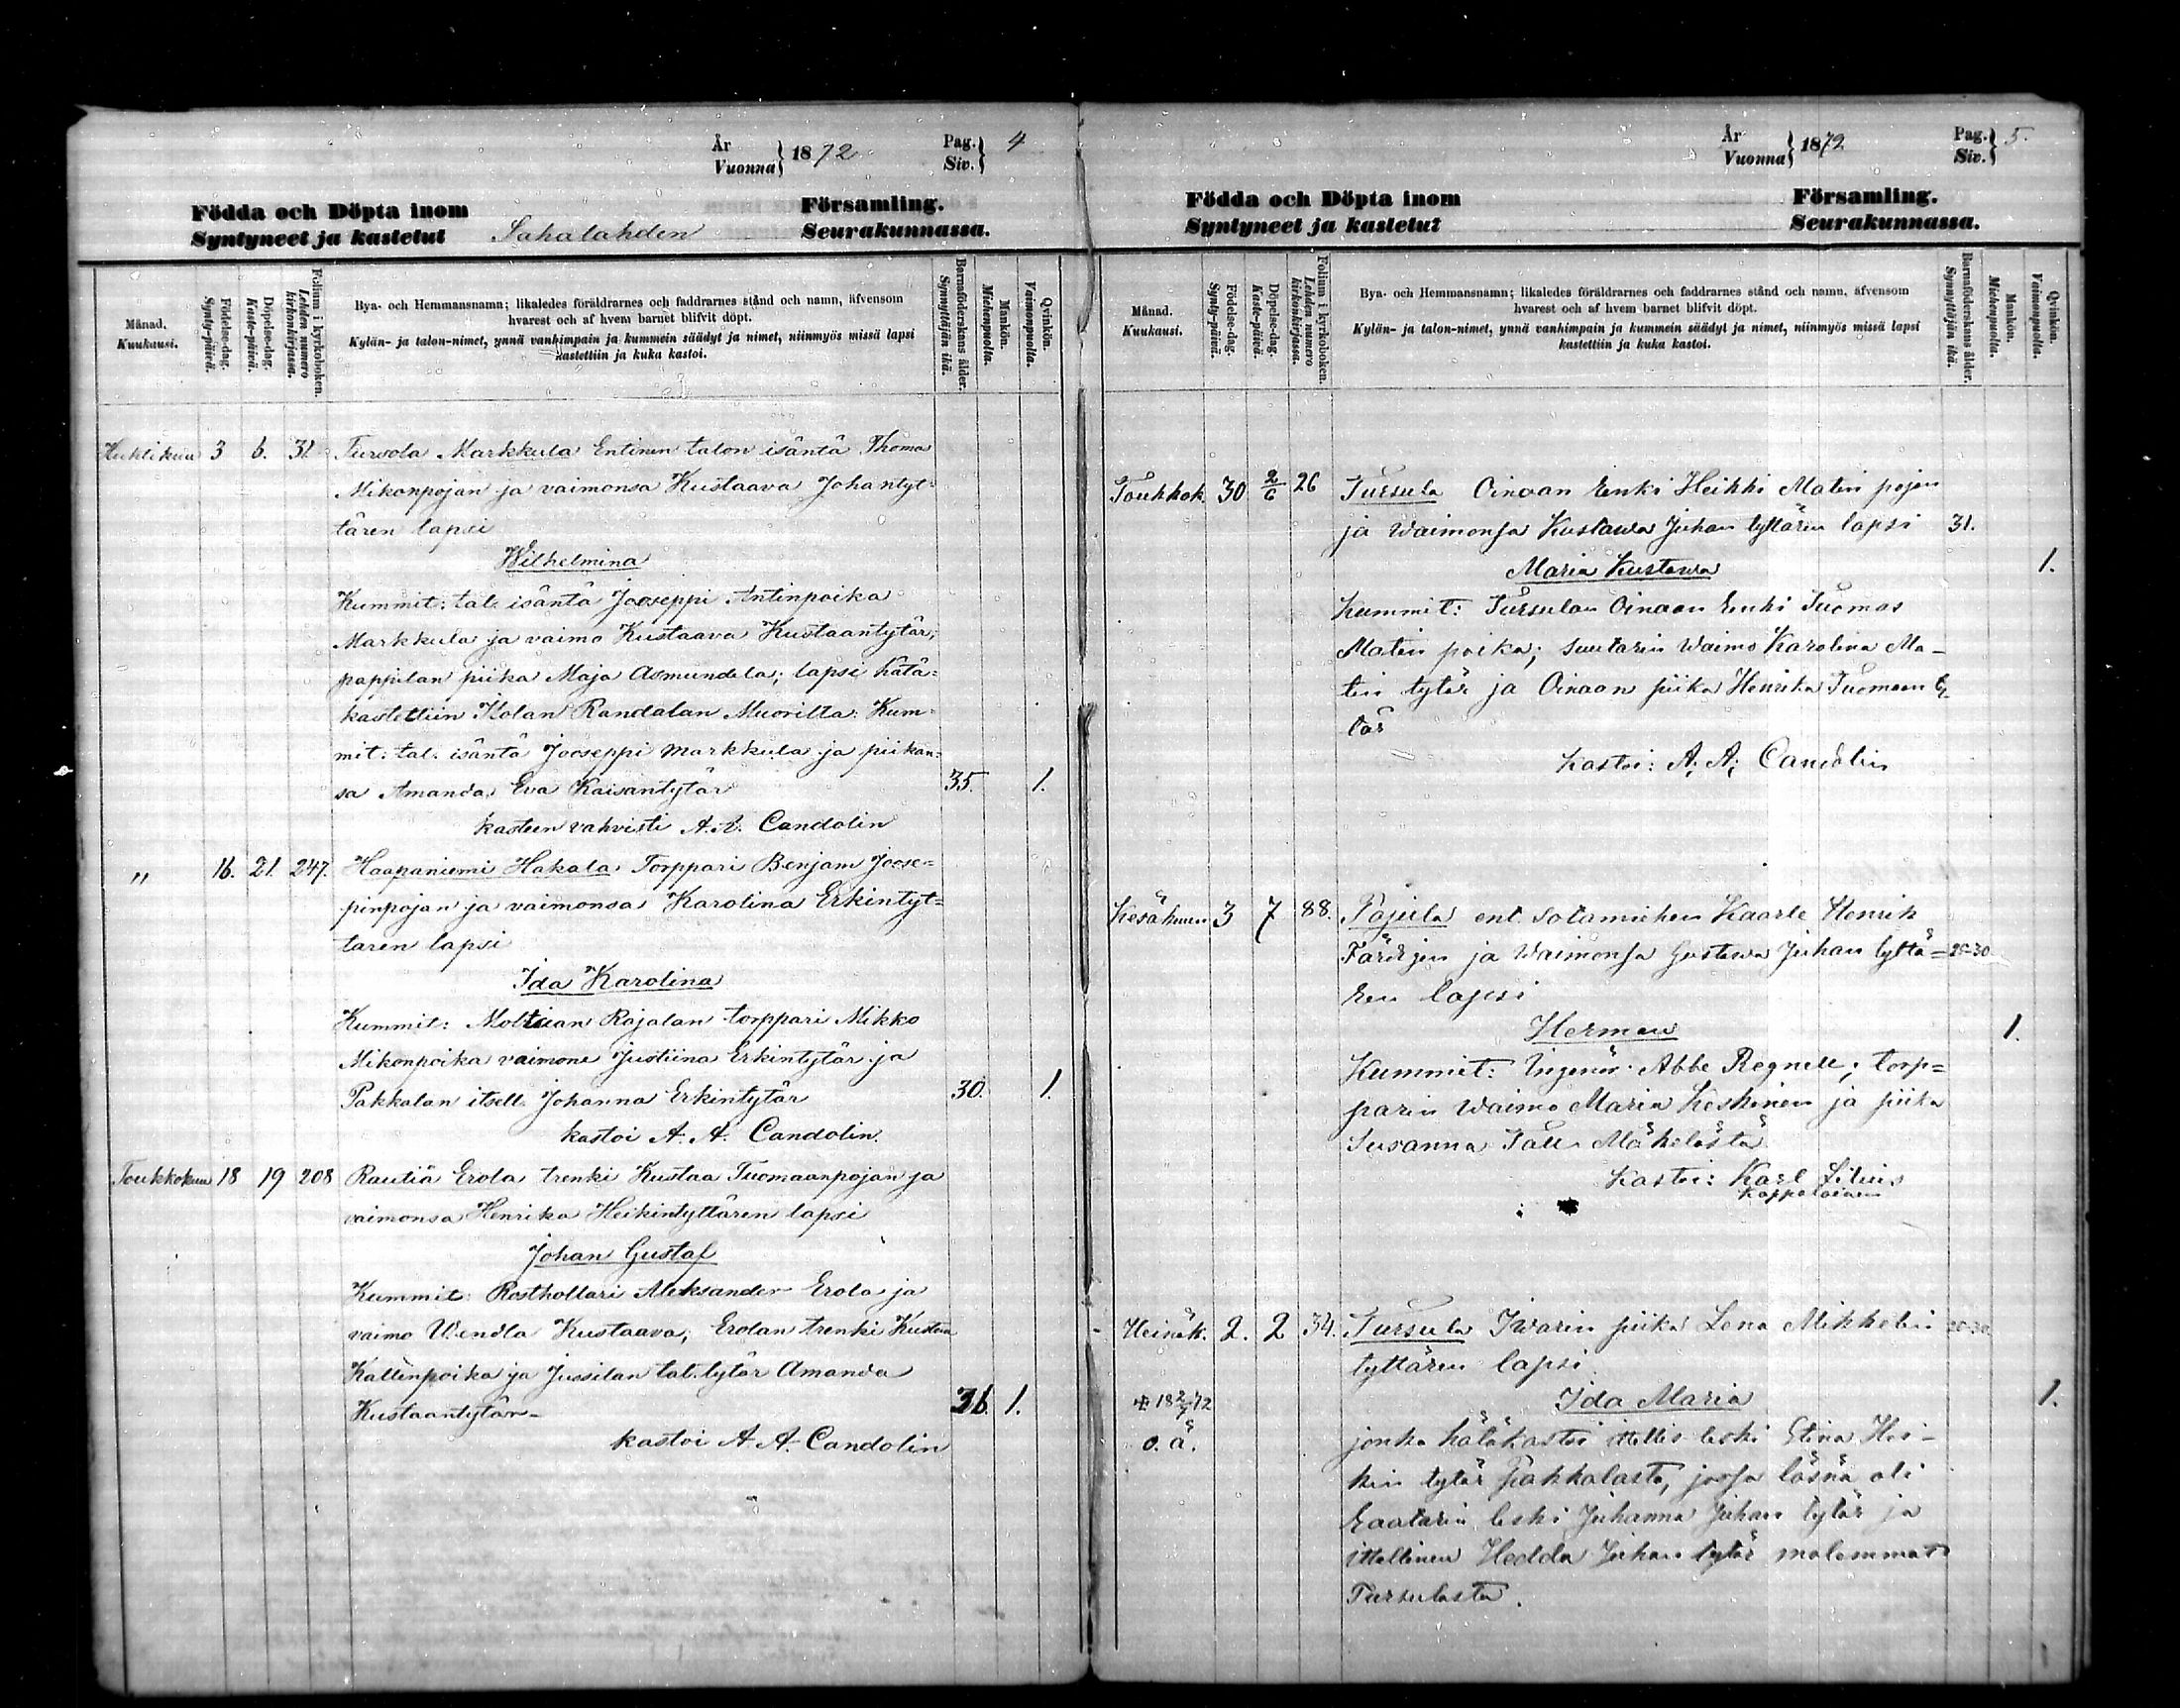 År
Vuonna } 1872
Pag.
Siv. } 4
Födda och Döpta inom Församling.
Syntyneet ja kastetut Sahalahden Seurakunnassa.
Månad.
Kuukausi.
Födelse-dag.
Synty-päivä.
Döpelse-dag.
Kaste-päivä.
Folium i kyrkoboken.
Lehden numero
kirkonkirjassa.
Bya- och Hemmansnamn; likaledes föräldrarnes och faddrarnes stånd och namn, äfvensom
hvarest och af hvem barnet blifvit döpt.
Kylän- ja talon-nimet, ynnä vanhimpain ja kummein säädyt ja nimet, niinmyös missä lapsi
kastettiin ja kuka kastoi.
Barnaföderskans ålder.
Synnyttäjän ikä.
Mankön.
Miehenpuolta.
Qvinkön.
Vaimonpuolta.
Huhtikuu 3 6. 31 Tursola Markkula Entinen talon isäntä Thoma
Mikonpojan ja vaimonsa Kustaava Johantyt=
tären lapsi
Wilhelmina
Kummit: tal. isäntä Jooseppi Antinpoika
Markkula ja vaimo Kustaava Kustaantytär;
pappilan piika Maja Asmundela; lapsi hätä=
kastettiin Isolan Randalan Muorilta: Kum=
mit: tal. isäntä Jooseppi Markkula ja piikan=
sa Amanda Eva Kaisantytär 35. 1.
kasteen vahvisti A. A. Candolin
" 16. 21. 247. Haapaniemi Hakala Torppari Benjam Joose=
pinpojan ja vaimonsa Karolina Erkintyt=
tären lapsi
Ida Karolina
Kummit: Moltian Rajalan torppari Mikko
Mikonpoika vaimone Justiina Erkintytär ja
Pakkalan itsell. Johanna Erkintytär 30. 1.
kastoi A. A. Candolin.
Toukkokuu 18 19 208 Rautiä Erola trenki Kustaa Tuomaanpojan ja
vaimonsa Henrika Heikintyttären lapsi
Johan Gustaf
Kummit: Rosthollari Aleksander Erola ja
vaimo Wendla Kustaava; Erolan trenki Kustaa
Kallenpoika ja Jussilan tal. tytär Amanda
Kustaantytär 36. 1.
kastoi A. A. Candolin
År
Vuonna } 1872
Pag.
Siv. } 5.
Födda och Döpta inom Församling.
Syntyneet ja kastetut Seurakunnassa.
Månad.
Kuukausi.
Födelse-dag.
Synty-päivä.
Döpelse-dag.
Kaste-päivä.
Folium i kyrkoboken.
Lehden numero
kirkonkirjassa.
Bya- och Hemmansnamn; likaledes föräldrarnes och faddrarnes stånd och namn, äfvensom
hvarest och af hvem barnet blifvit döpt.
Kylän- ja talon-nimet, ynnä vanhimpain ja kummein säädyt ja nimet, niinmyös missä lapsi
kastettiin ja kuka kastoi.
Barnaföderskans ålder.
Synnyttäjän ikä.
Mankön.
Miehenpuolta.
Qvinkön.
Vaimonpuolta.
Toukkok. 30 2/6 26 Tursula Oinaan renki Heikki Matin pojan
ja Waimonsa Kustawa Juhan tyttären lapsi 31.
Maria Kustawa 1.
Kummit: Tursulan Oinaan renki Tuomas
Matin poika; suutarin Waimo Karolina Ma-
tin tytär ja Oinaan piika Henrika Tuomaan ty-
tär
Kastoi: A. A. Candolin
Kesäkuun 3 7 88. Pajula ent. sotamiehen Kaarle Henrik
Färdijen ja Waimonsa Gustawa Juhan tyttä= 25-30
ren lapsi
Herman 1.
Kummit: Ingenör Abbe Regnell; torp=
parin Waimo Maria Keskinen ja piika
Susanna Mäkelästä
Kastoi: Karl Lilius
Kappalainen
Heinäk. 2. 2 34. Tursula Iwarin piika Lena Mikkelin
tyttären lapsi.
Ida Maria 1.
18 2/7 72
o. ä.
jonka hätäkastoi ittellis leski Stina Hei-
kin tytär Pakkalasta, jossa läsnä oli
Raatarin leski Juhanna Juhan tytär ja
ittellinen Hedda Juhan tytär molemmat
Tursulasta.